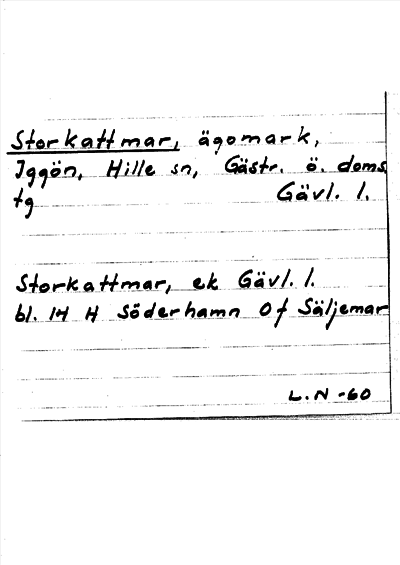 Storkattmar, ägomark,
Iggön, Hille sn, Gästr. ö. doms.
tg Gävl. l.
Storkattmar, ek Gävl. l.
bl. 14 H Söderhamn 0 f Säljemar
L.N -60